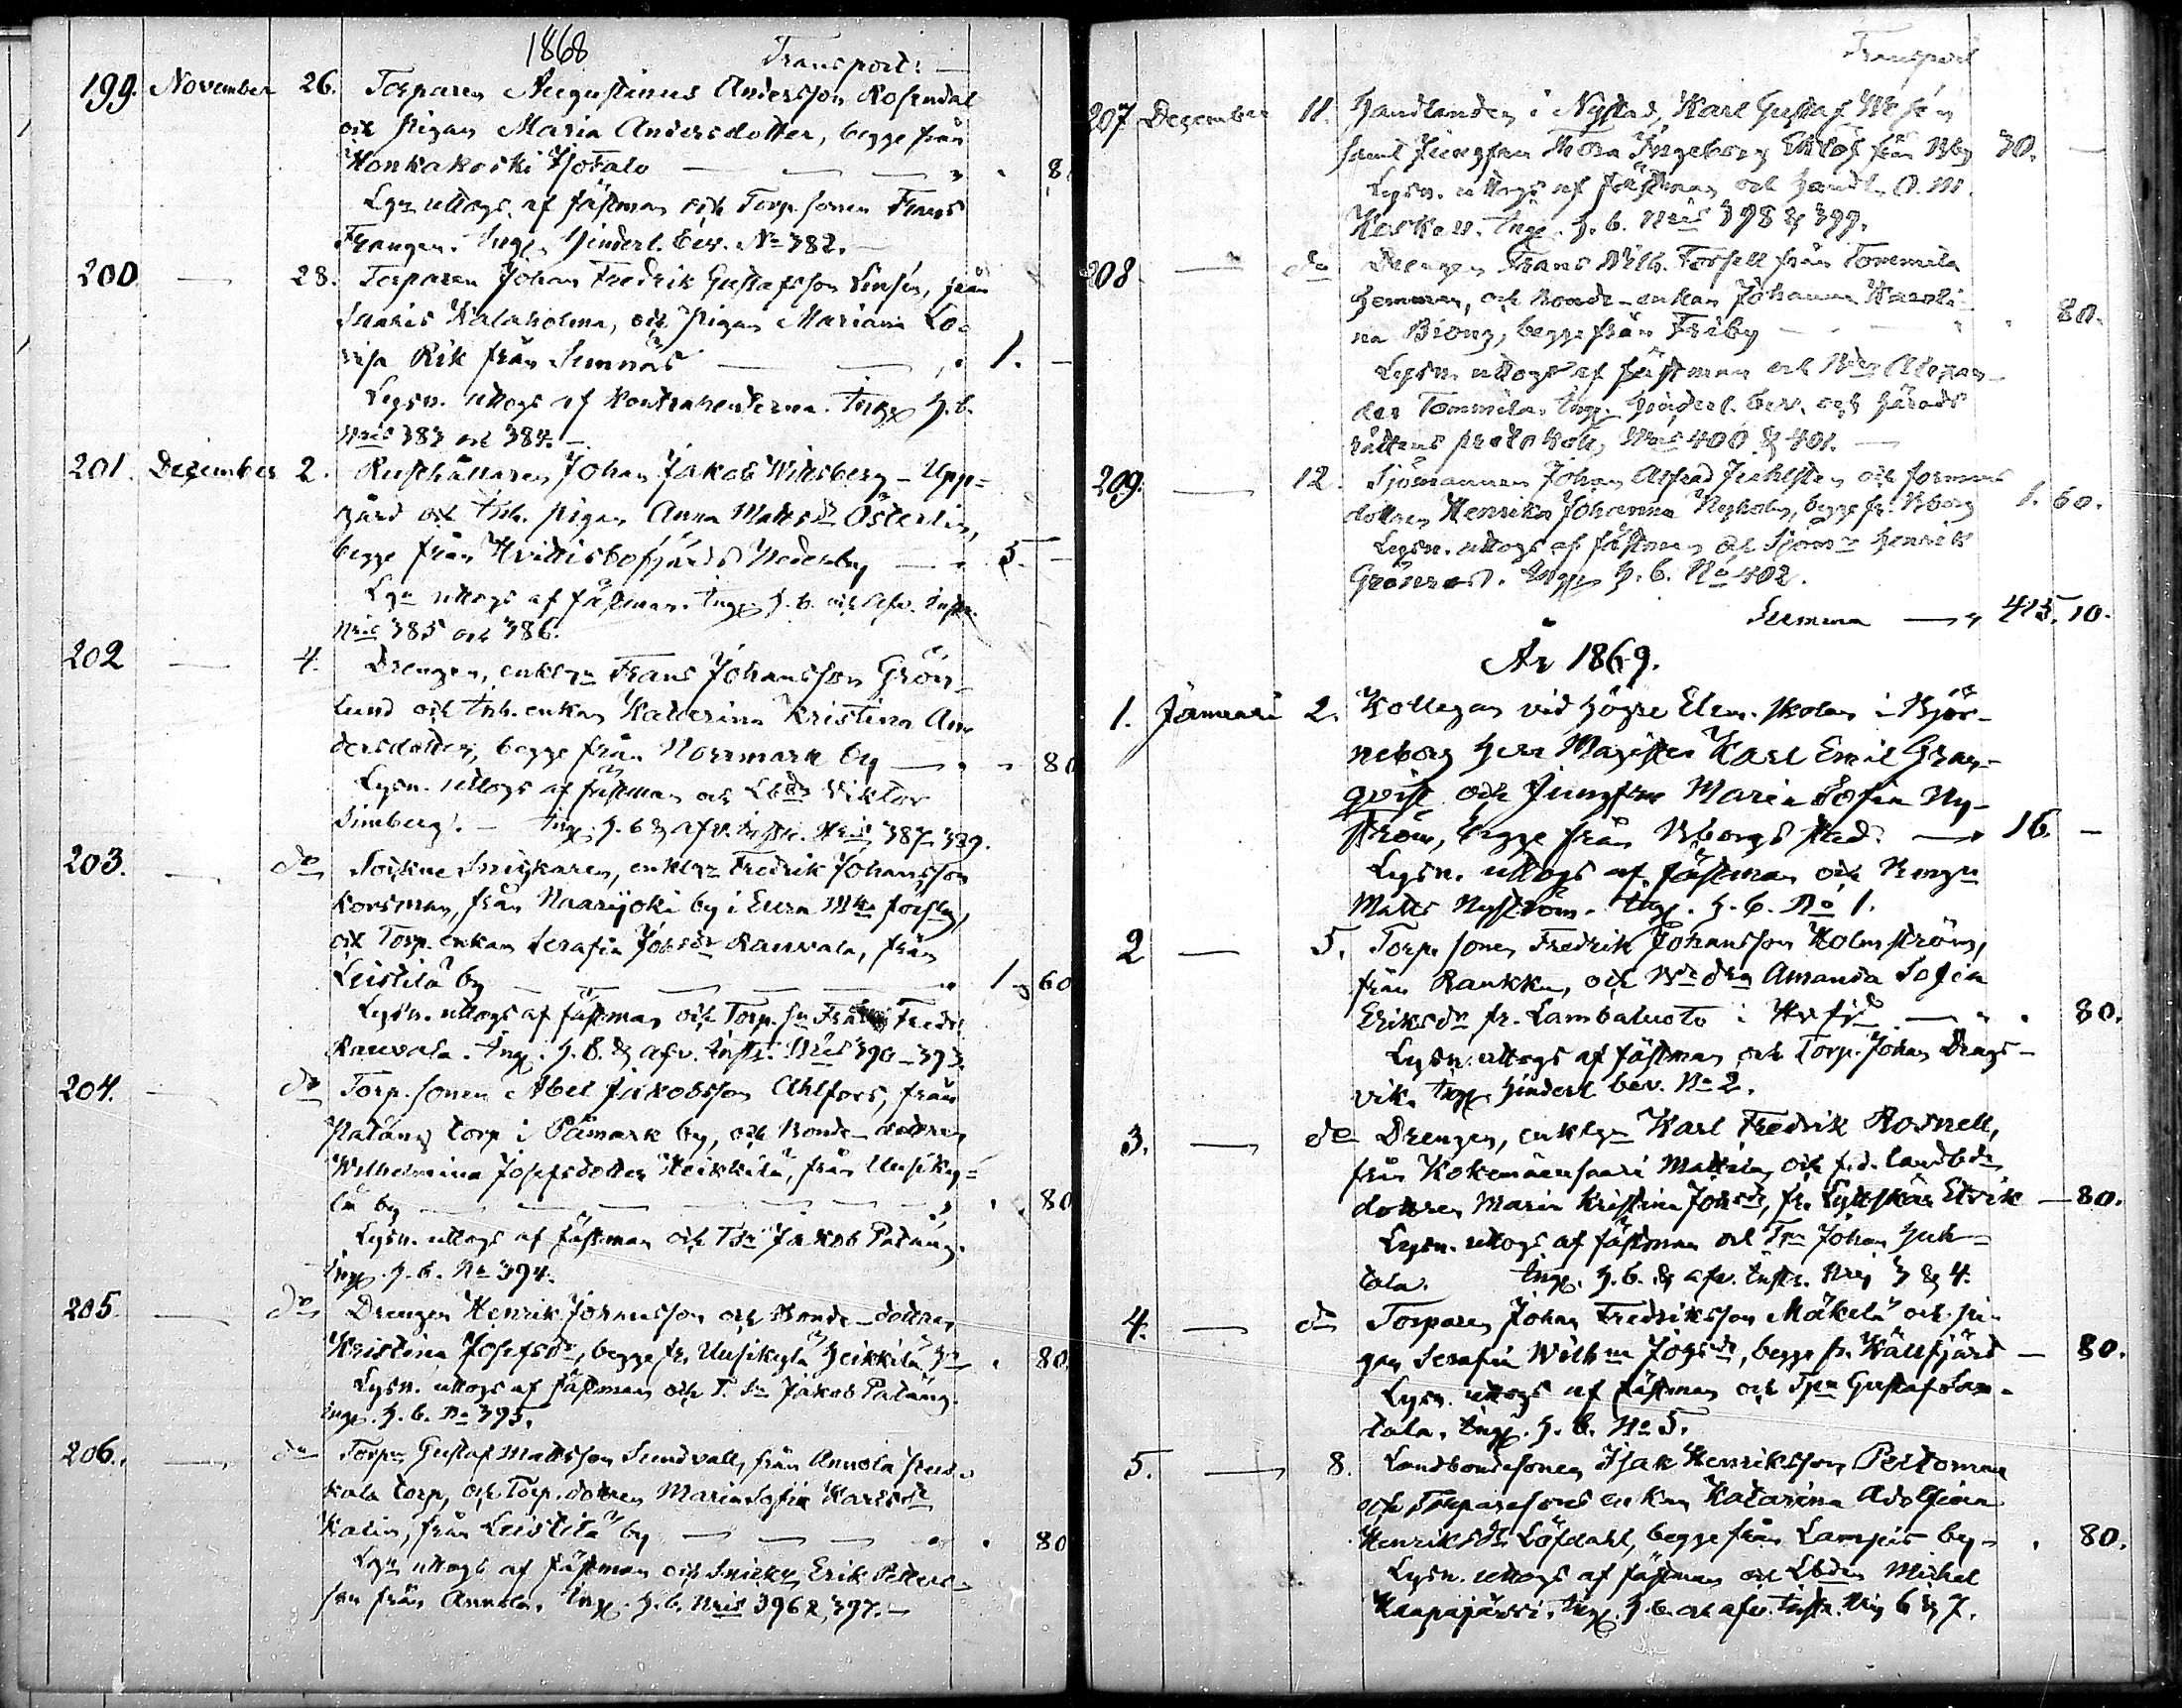 1868 Transport:
199. November 26. Torparen Augustinus Andersson Rosendal
och pigan Maria Andersdotter, begge från
Honkakoski Isotalo — 8
Lysn uttogs af fästman och Torp. sonen Frans
Frangen. Ingg. Hinderl. bev. No 382.
200 — 28. Torparen Johan Fredrik Gustafsson Linsén, från
Isaknis Kalaholma, och pigan Mariana Lo-
visa Rik från Sunnäs — 1. —
Lysn. uttogs af Kontrahenterna. Ingg H. b.
Nris 383 och 384. —
201. December 2. Rusthållaren Johan Jakob Wiksberg - Upp-
gård och Inh. pigan Anna Matts dr Österlin,
begge från Hvittisbofjärds Nederby — 5. —
Lyn uttogs af fästman. Ingg H. b. och afv. Instr.
Nris 385 och 386.
202 — 4. Drengen, enklgn Frans Johansson Grön-
lund och Inh. enkan Katarina Kristina An-
dersdotter, begge från Norrmark by — 80
Lysn. uttogs af fästman och Lbdn Viktor
Simberg. — Ingg. H. b & afv. instr. Nris 387-389.
203. — do Sockne Snickaren, enklgn Fredrik Johansson
Korsman, från Naarijoki by i Eura Mka förslg,
och Torp. enkan Serafia Johsdr Rauvala, från
Leistilä by — 1 60
Lysn. uttogs af fästman och Torp. sn Fredr.
Rauvala. Ingg. H. b. & afv. Instr. Nris 390-393.
204. — do Torp. sonen Abel Jakobsson Ahlfors, från
Patäng torp i Påmark by, och Bonde-dottren
Wilhelmina Josefsdotter Heikkilä, från Uusiky-
lä by — 80
Lysn. uttogs af fästman och Tsn Jakob Patäng.
Ingg. H. b. No 394.
205. — do Drengen Henrik Johansson och Bonde-dottren
Kristina Josefsdr, begge fr. Uusikylä Heikkilä Hn 80.
Lysn. uttogs af fästman och T. sn Jakob Patäng.
Ingg. H. b. No 395.
206. — do Torpn Gustaf Mattsson Sundvall, från Annola
kala torp, och Torp. dottren Maria Sofia Karlsdr
Kalin, från Leistilä by — 80
Lyn uttogs af fästman och Snickn Erik Petters-
son från Annola. Ingg. H. b. Nris 396 & 397. —
Transport
207 December 11. Handlanden i Nystad, Karl Gustaf Wesén
samt Jungfrun Thora Ingeborg Eklöf från Bbg 30. —
Lysn. uttogs af fästman och Handl. O. M.
Ingg. H. b. Nris 398 & 399.
208. — do Drengen Frans Wilh. Forsell från Tommila
Hemman, och Bonde-enkan Johanna Karoli-
na Biong, begge från Friby — 80.
Lysn. uttogs af fästman och Bdn Alexan-
der Tommila. Ingg. Hinderl. bev. och Härads
rättens protokoll, Nris 400 & 401. —
209. — 12. Sjömannen Johan Alfred Frehlsten och formans
dottren Henrika Johanna Nyholm, begge fr. Bborg 1. 60.
Lysn. uttogs af fästman och Sjömn Henrik
Grönroos. Ingg H. b. No 402.
Summa — 415. 10.
År 1869.
1. Januari 2. Kollegan vid högre Elem. skolan i Björ-
neborg Herr Magister Karl Emil Gran-
qvist och Jungfru Maria Sofia Ny-
ström, begge från Bborgs stad. — 16 —
Lysn. uttogs af fästman och
Matts Nyström. Ingg. H. b. No 1.
2 — 5. Torp. sonen Fredrik Johansson Holmström,
från Raukku, och Bde drn Amanda Sofia
Eriksdr fr. Lambaluoto i Hvfjd — 80.
Lysn. uttogs af fästman och Torp. Johan Drags-
vik. Ingg. Hinderl bev. No 2.
3. — do Drengen, enklgn Karl Fredrik Rosnell,
från Kokemäensaari Mattila, och f. d. landbds
dottren Maria Kristina Johsdr, fr. Lyttskär Etvik — 80.
Lysn. uttogs af fästman och Tpn Johan Huh-
tala. Ingg. H. b. & afv. Instr. Nris 3 & 4.
4. — do Torparen Johan Fredriksson Mäkelä och pi-
gan Serafia Wilhna Johsdr, begge fr. Källfjärd — 80.
Lysn. uttogs af fästman och Tpn Gustaf San-
tala. Ingg. H. b. No 5.
5. — 8. Landbondesonen Isak Henriksson Peltomaa
och Torparesons enkan Katarina Adolfina
Henriksdr Löfdahl, begge från Lampis by — 80.
Lysn. uttogs af fästman och Lbdn Michel
Haapajärvi. Ingg. H. b. och afv. Instr. Nris 6 & 7.